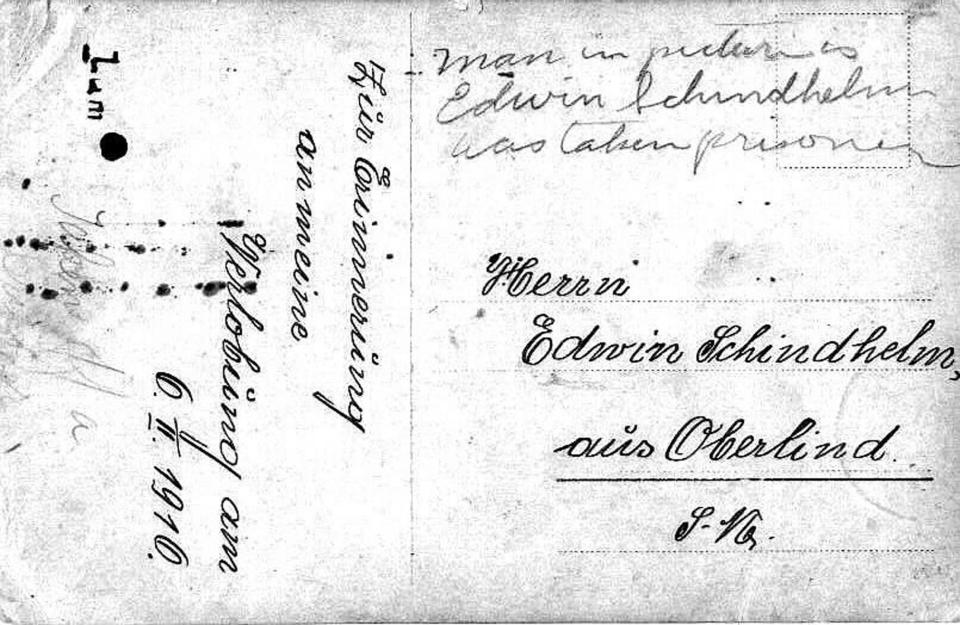 man in picture is
Edwin Schindhelm
was taken prisoner
Herrn
Edwin Schindhelm,
aus Oberlind.
S.-M.
Zur Erinnerung
an meine
Verlobung am
6. II. 1916.
Zum